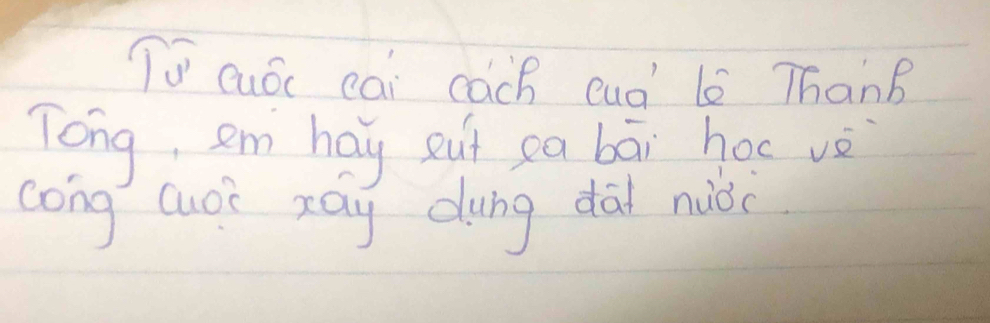 Từ cuộc cải cách của lê Thánh
Tông, em hãy rút ra bài học về
công cuộc xây dựng đất nước.